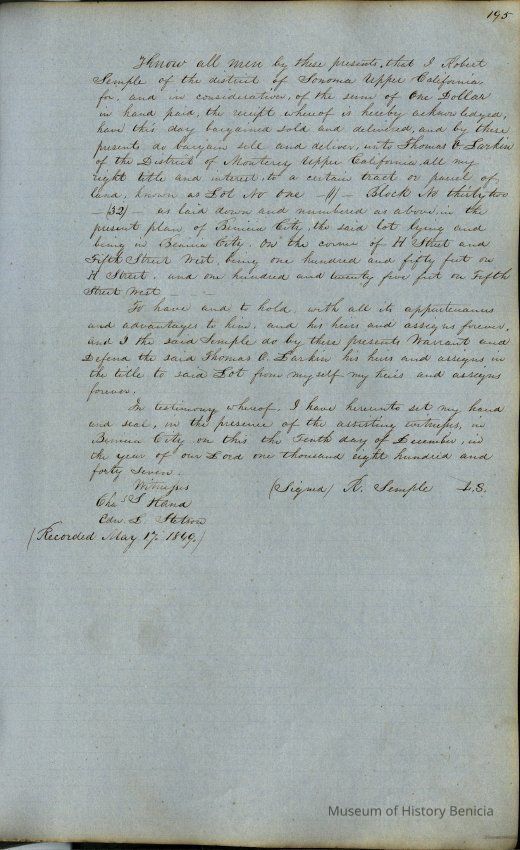 195
Know all men by these presents, that I Robert
Semple of the district of Sonoma Upper California,
for, and in consideration, of the sum of One Dollar
in hand paid, the receipt whereof is hereby acknowledged,
have this day bargained sold and delivered, and by these
presents do bargain sell and deliver, unto Thomas O. Larkin
of the District of Monterey Upper California all my
right title and interest, to a certain tract or parcel of
land, known as Lot No One -(1)- Block No thirty two
-(32)- as laid down and numbered as above, in the
present plan of Benicia City, the said lot lying and
being in Benicia City. On the corner of H Street and
Fifth Street West, being one hundred and fifty feet on
H Street, and one hundred and twenty five feet on Fifth
Street West
To have and to hold, with all its appurtenances
and advantages to him, and his heirs and assigns forever,
and I the said Semple do by these presents Warrant and
Defend the said Thomas O. Larkin his heirs and assigns in
the title to said Lot from myself my heirs and assigns
forever.
In testimony whereof, I have hereunto set my hand
and seal, in the presence of the assisting witnesses, in
Benicia City on this the Tenth day of December, in
the year of our Lord one thousand eight hundred and
forty seven.
Witnesses (Signed) R. Semple L.S.
Chas S Hand
Edw. L. Stetson
(Recorded May 17. 1849.)
Museum of History Benicia